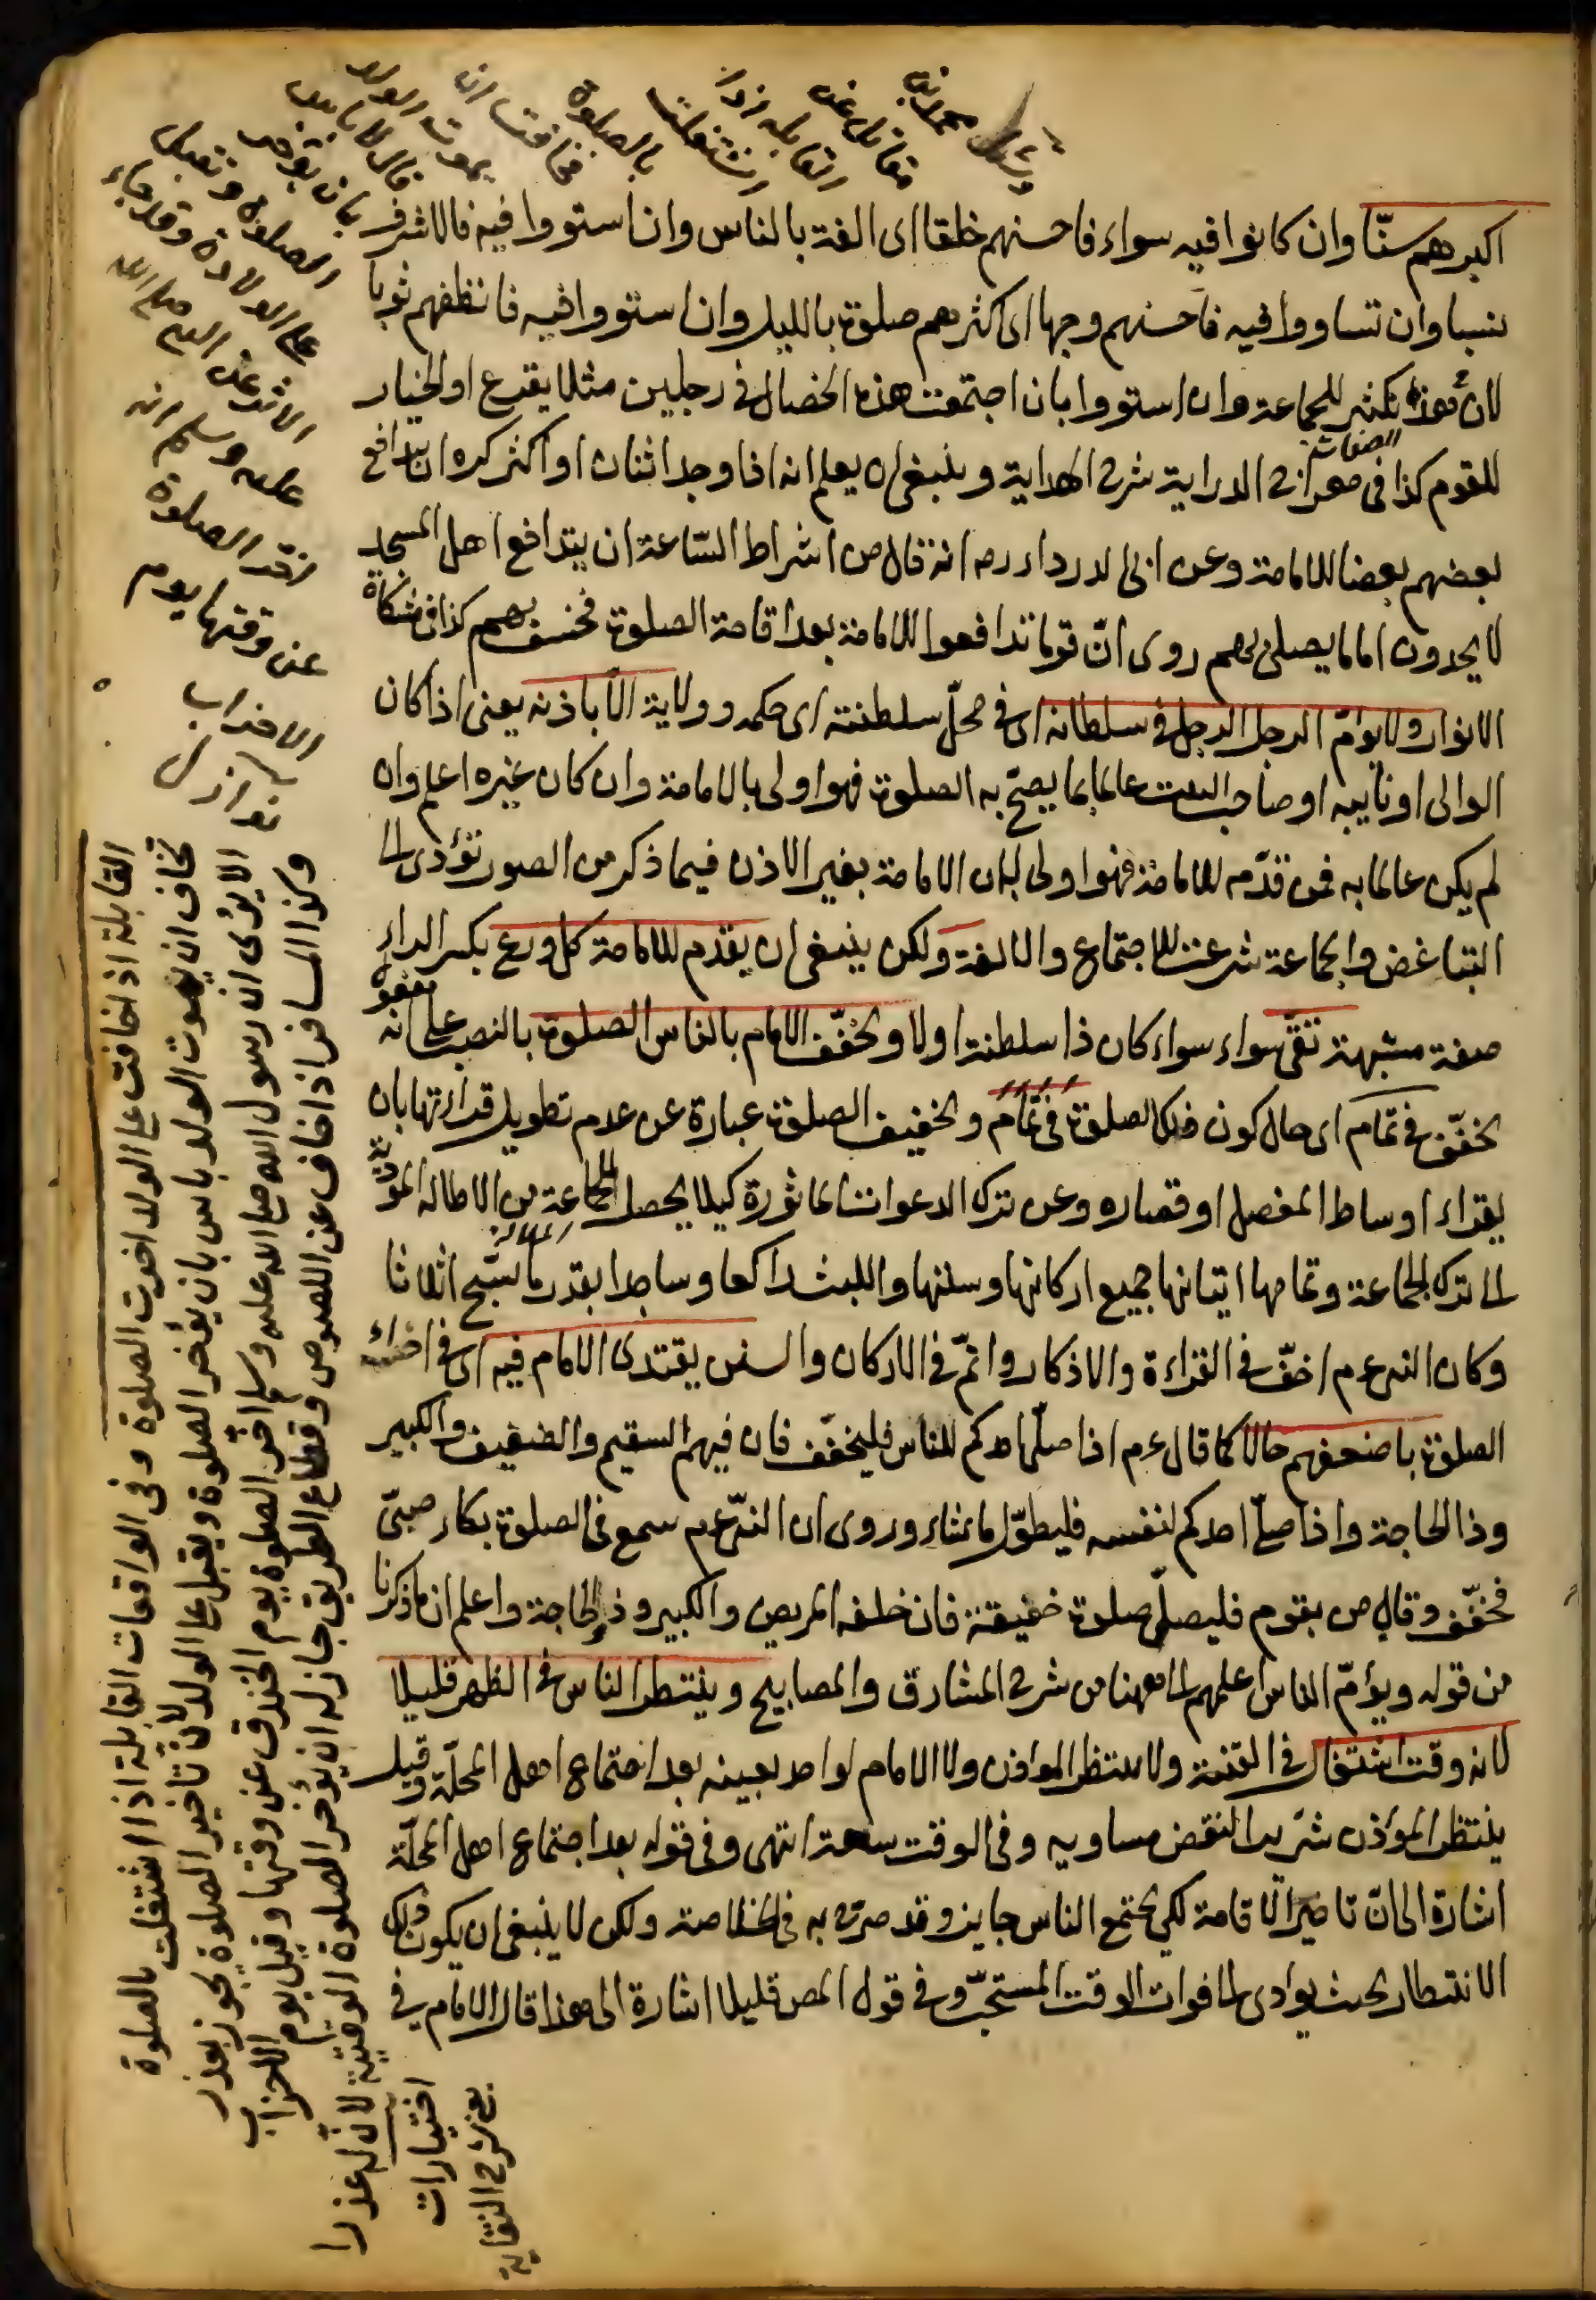 اكبرهم سنّا وان كانوا فيه سواء فاحسنهم خلقا اى الفة بالناس وان استووا فيه فالاشرف
نسبا وان تساووا فيه فاحسنهم وجها اى اكثرهم صلوة بالليل وان استووا فيه فانظفهم ثوبا
لان فى هذه تكثير للجماعة وان استووا بان اجتمعت هذه الخصال فى رجلين مثلا يقرع او الخيار
للقوم كذا فى معراج الدراية شرح الهداية وينبغى ان يعلم انه اذا وجد اثنان او اكثر كره ان يتدافع
بعضهم بعضا للامامة وعن ابى الدرداء رم انه قال من اشراط السّاعة ان يتدافع اهل المسجد
لا يجدون اماما يصلى بهم روى انّ قوما تدافعوا للامامة بعد اقامة الصلوة فخسف بهم كذا فى مشكاة
الانوار ولا يؤمّ الرجل الرجل فى سلطانه اى فى محلّ سلطنته اى حكمه وولاية الّا باذنه يعنى اذا كان
الوالى او نايبه او صاحب البيت عالما بما يصحّ به الصلوة فهو اولى بالامامة وان كان غيره اعلم وان
لم يكن عالما به فمن قدّمه للامامة فهو اولى لان الامامة بغير الاذن فيما ذكر من الصور تؤدى الى
التباغض والجماعة شرعت للاجتماع والالفة ولكن ينبغى ان يقدم للامامة كل ورع بكسر الراء
صفة مشبهة تقىّ سواء سواء كان ذا سلطنة اولا ويخفّف الامام بالناس الصلوة بالنصب على انه مفعول
يخفّف فى تمام اى حال كون تلك الصلوة فى تمام وتخفيف الصلوة عبارة عن عدم تطويل قراءتها بان
يقراء اوساط المفصل او قصاره وعن ترك الدعوات الماثورة كيلا يحصل للجماعة من الاطالة المؤدّية
الملالة
الى ترك الجماعة وتمامها اتيانها بجميع اركانها وسننها واللبث راكعا وساجدا بقدر ما يسبّح اثلاثا
وكان النبى عم اخفّ فى القراءة والاذكار واتمّ فى الاركان والسنن يقتدى الامام فيه اى فى اداء
الصلوة باضعفهم حالا كما قال عم اذا صلّى احدكم للناس فليخفّف فان فيهم السقيم والضعيف والكبير
وذا الحاجة واذا صلّى احدكم لنفسه فليطوّل ما شاء وروى ان النبى عم سمع فى الصلوة بكاء صبىّ
فخفّف وقال من بقوم فليصلّ صلوة خفيفة فان خلفه المريض والكبير وذو الحاجة واعلم ان ما ذكرنا
من قوله ويؤمّ الناس اعلمهم الى ههنا من شرح المشارق والمصابيح وينتظر الناس فى الظهر قليلا
لانه وقت اشتغال فى القنية ولا ينتظر المؤذن ولا الامام لواحد بعينه بعد اجتماع اهل المحلّة وقيل
ينتظر المؤذن شرّيرا لنقض مساويه وفى الوقت سعة انتهى وفى قوله بعد اجتماع اهل المحلّة
اشارة الى انّ تاخير الاقامة لكى يجتمع الناس جايز وقد صرّح به فى الخلاصة ولكن لا ينبغى ان يكون ذلك
الانتظار بحيث يؤدى الى فوات الوقت المستحبّ وفى قول المص قليلا اشارة الى هذا قال الامام فى
بالصلوة
فخافت ان
يموت الولد
قال لا باس
بان تؤخر
الصلوة وتقبل
على الولادة وقد جاء
الاثر عن النبى صلى الله
عليه وسلم انه
اخّر الصلوة
عن وقتها يوم
الاحزاب
القابلة اذا خافت على الولد اخرت الصلوة وفى الواقعات القابلة اذا اشتغلت بالصلوة
تخاف ان يموت الولد باس بان يؤخر الصلوة ويقبل على الولد لان تاخير الصلوة يجوز بعذر
الا يرى ان رسول الله صلى الله عليه وسلم اخّر الصلوة يوم الخندق عن وقتها وقيل يوم الاحزاب
وكذا المسافر اذا خاف عن اللصوص وقطاع الطريق جاز له ان يؤخر الصلوة الوقتية لانّ له عذرا
اختيارات
شرح النقاية